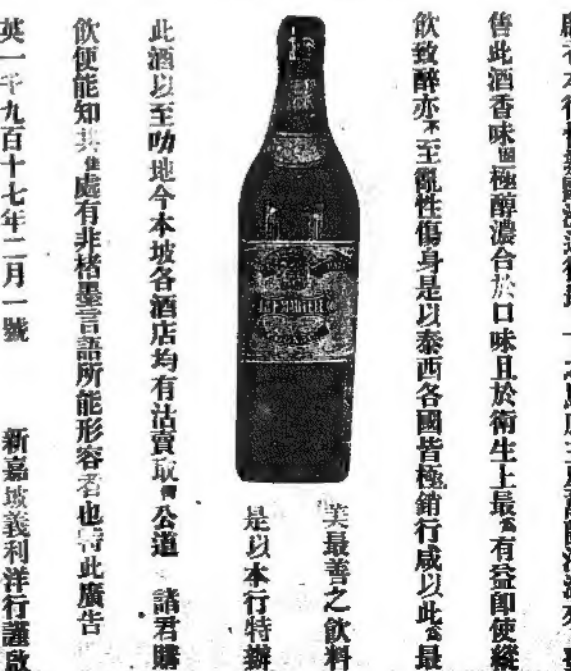 售此酒香味固極醇濃合於口味且於衛生上最為有益即使縱
飲致醉亦不至亂性傷身是以泰西各國皆極銷行咸以此為最
美最善之飲料
是以本行特辦
此酒以至叻地今本坡各酒店均有沽賣取價公道 諸君購
飲便能知其佳處有非楮墨言語所能形容者也特此廣告
英一千九百十七年二月一號 新嘉坡義利洋行謹啟